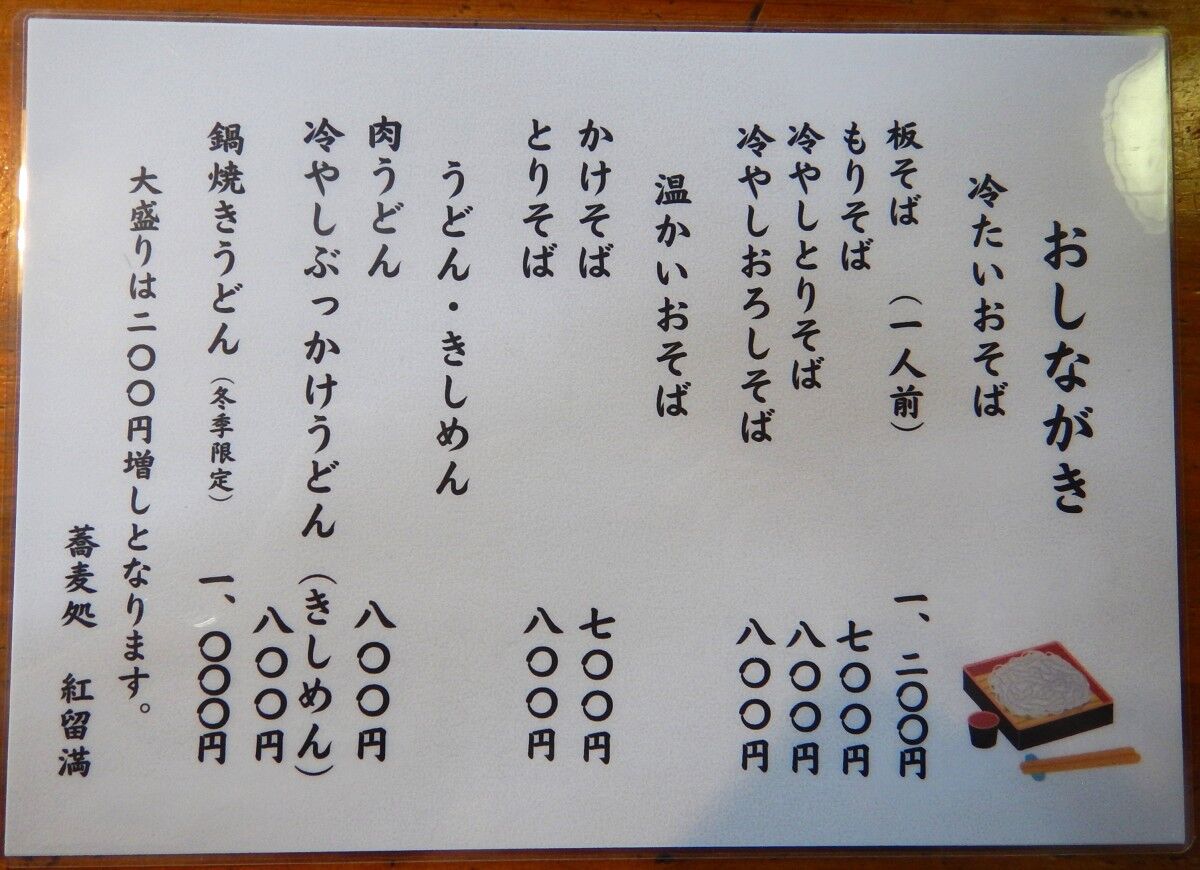 おしながき
冷たいおそば
板そば　（一人前）　一、二〇〇円
もりそば　七〇〇円
冷やしとりそば　八〇〇円
冷やしおろしそば　八〇〇円
温かいおそば
かけそば　七〇〇円
とりそば　八〇〇円
うどん・きしめん
肉うどん　八〇〇円
冷やしぶっかけうどん（きしめん）
八〇〇円
鍋焼きうどん（冬季限定）　一、〇〇〇円
大盛りは二〇〇円増しとなります。
蕎麦処　紅留満